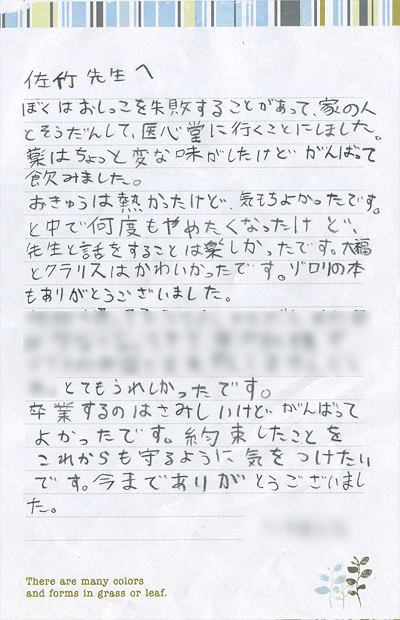 佐竹先生へ
ぼくはおしっこを失敗することがあって、家の人
とそうだんして、医心堂に行くことにしました。
薬はちょっと変な味がしたけどがんばって
飲みました。
おきゅうは熱かったけど、気もちよかったです。
と中で何度もやめたくなったけど、
先生と話をすることは楽しかったです。大福
とクラリスはかわいかったです。ゾロリの本
もありがとうございました。
とてもうれしかったです。
卒業するのはさみしいけど がんばって
よかったです。約束したことを
これからも守るように気をつけたい
です。今までありがとうございまし
た。
There are many colors
and forms in grass or leaf.